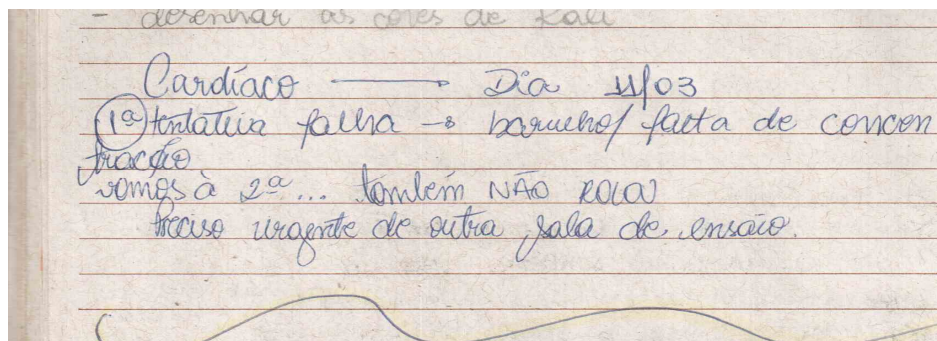 - desenhar as cores de Kali
Cardíaco —— Dia 11/03
1ª tentativa falha → barulho/ falta de concen
tração
vamos à 2ª... também NÃO ROLOU
Preciso urgente de outra sala de ensaio.